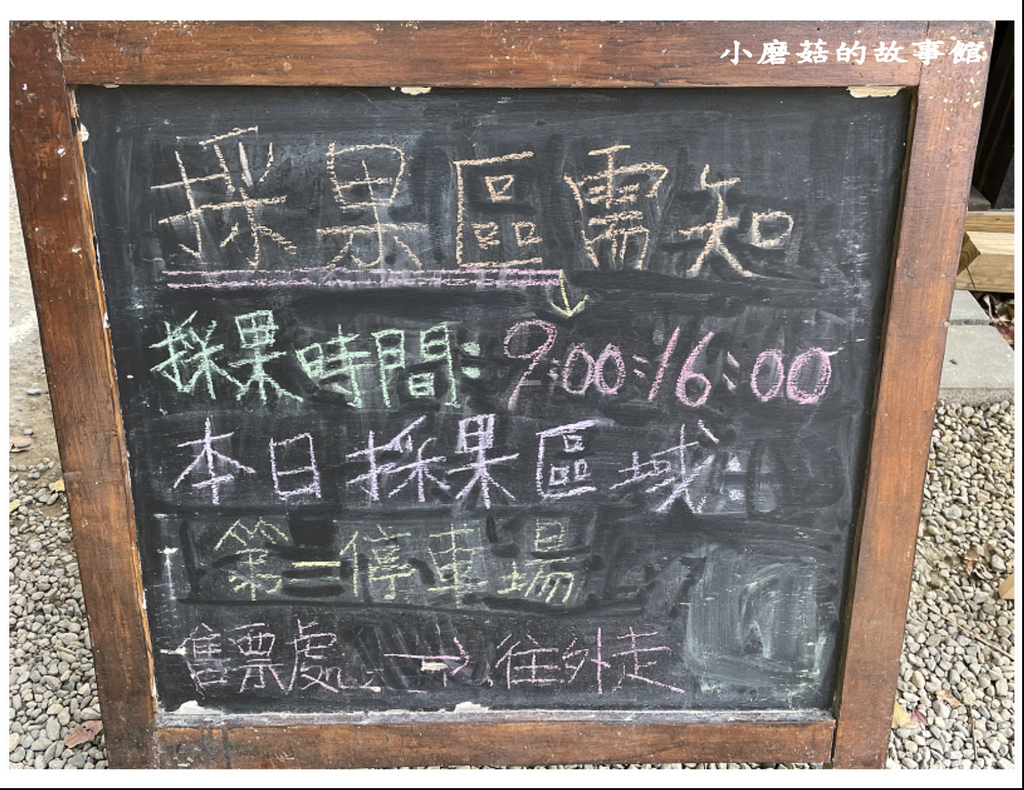 小磨菇的故事館
採果區需知
採果時間:9:00:16:00
本日採果區域:
第一停車場
售票處→往外走